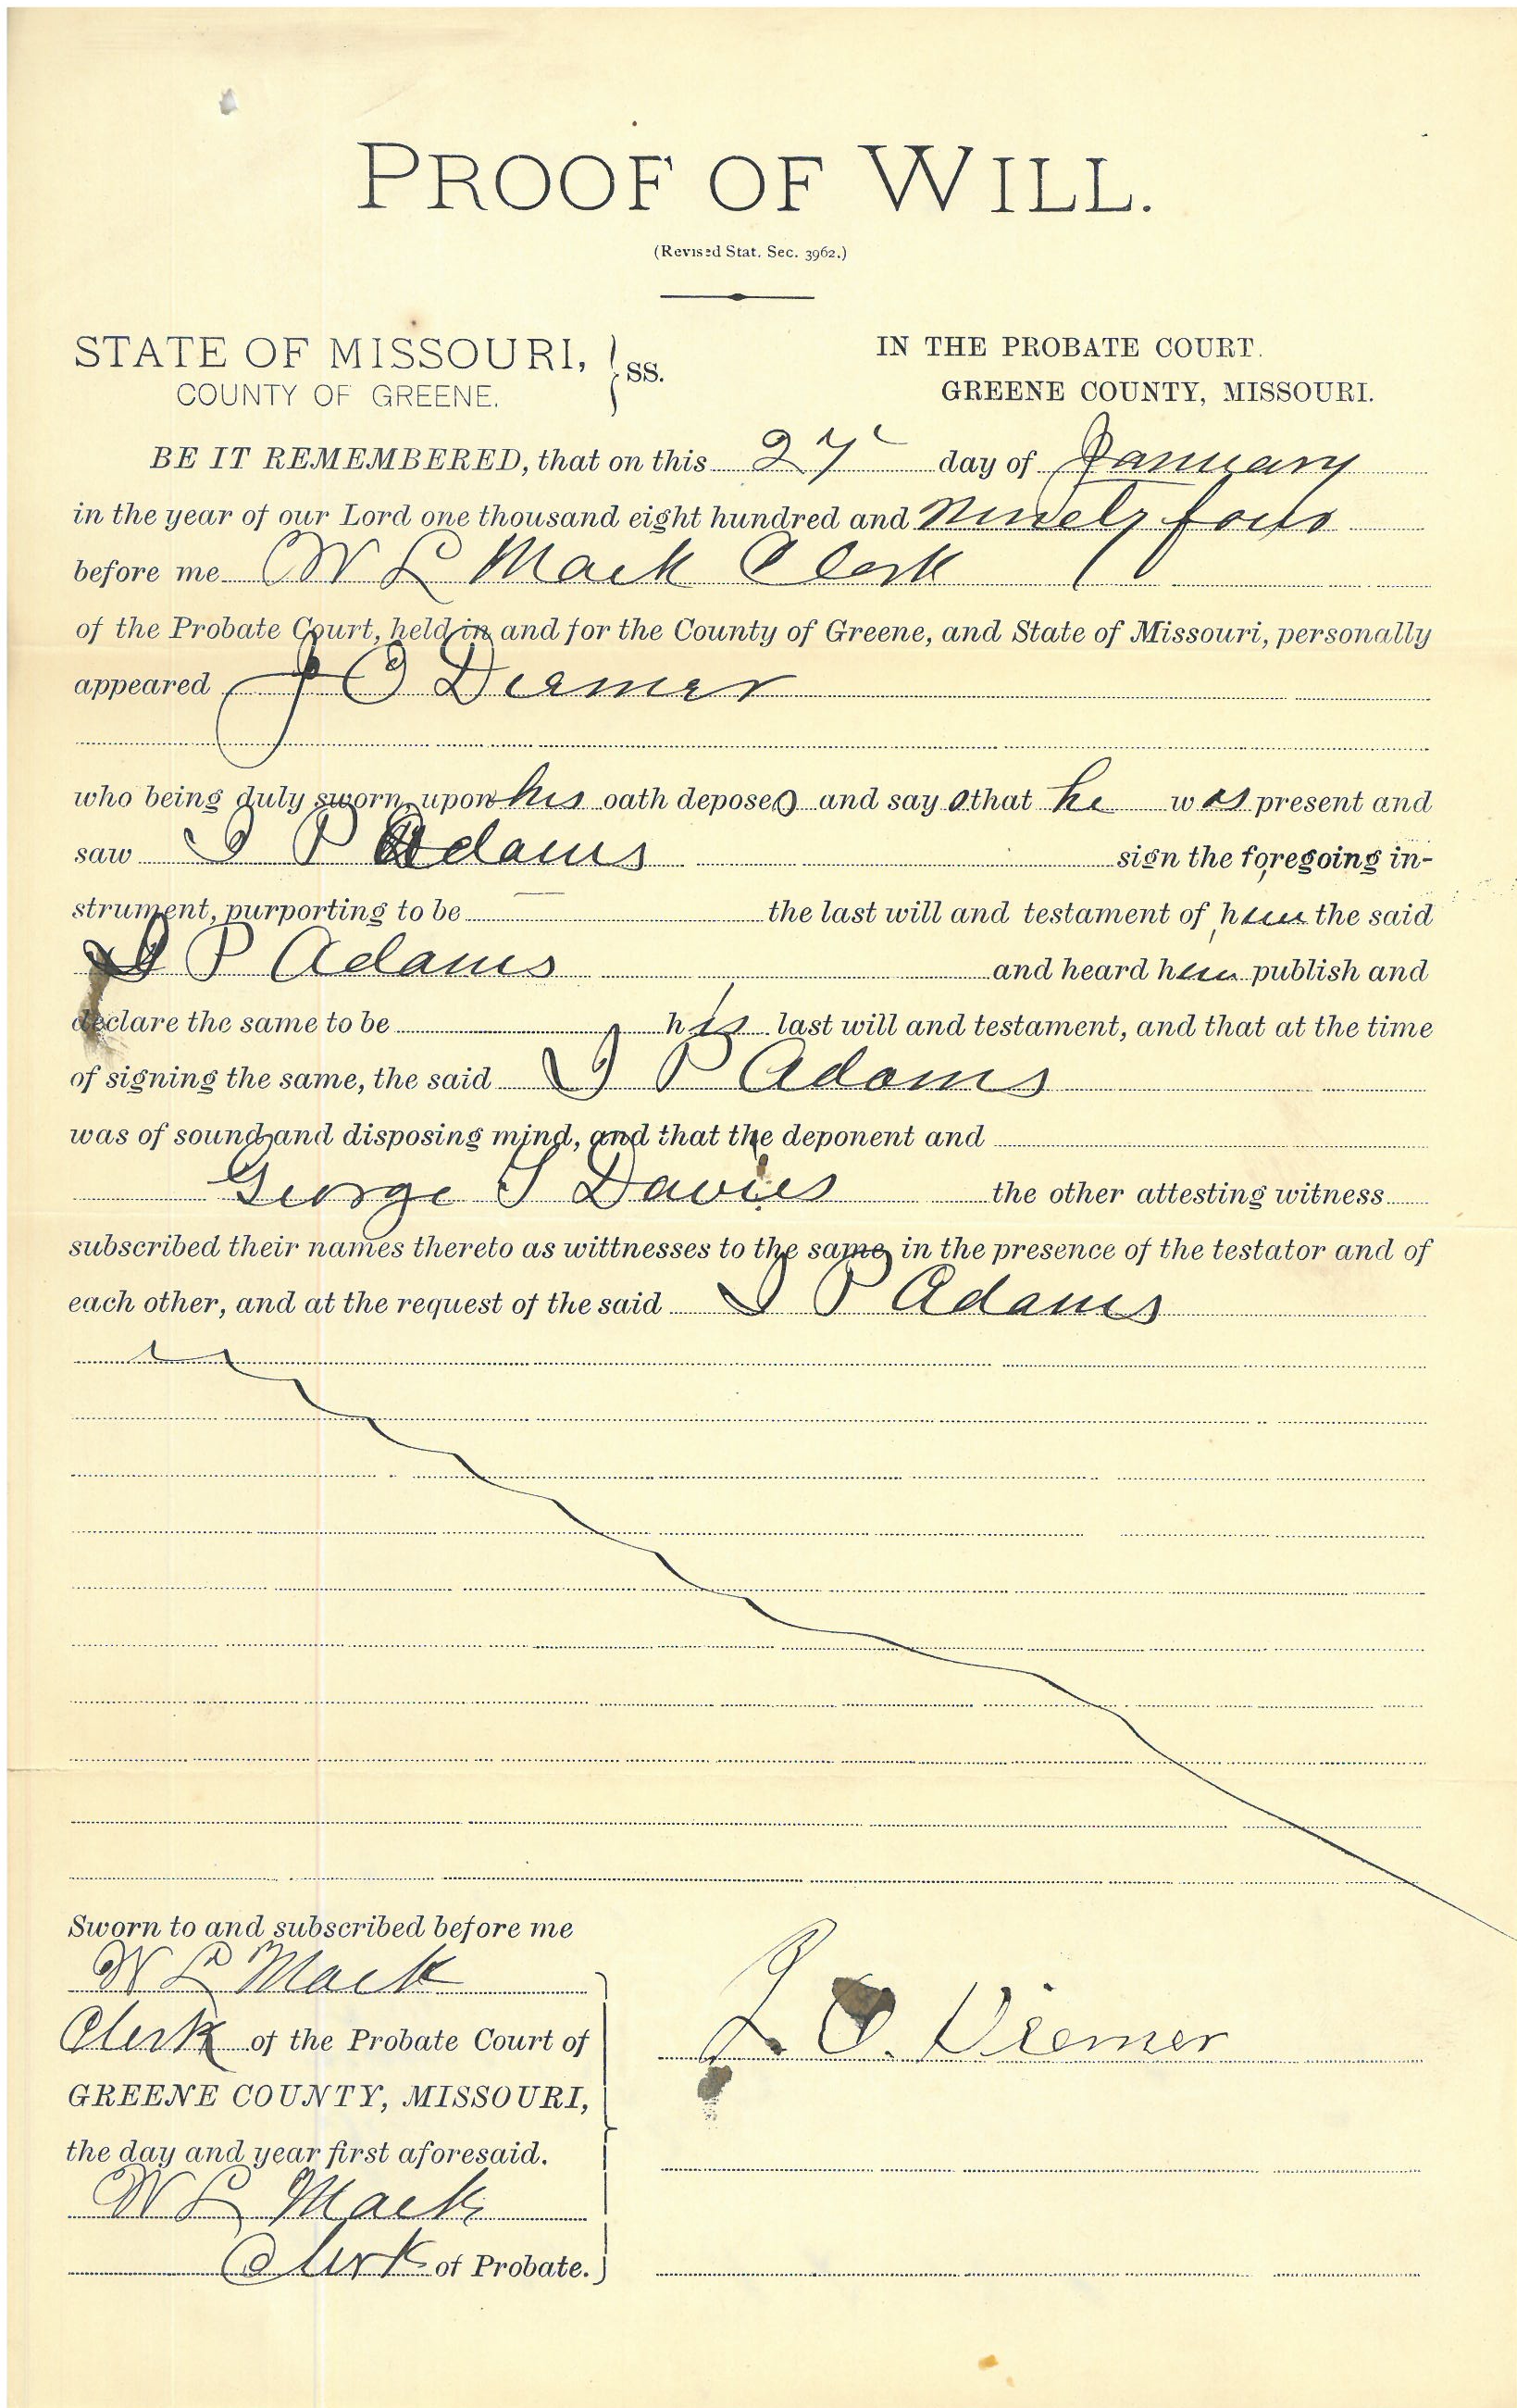 PROOF OF WILL.
(Revised Stat. Sec. 3962.)
STATE OF MISSOURI, } SS.
COUNTY OF GREENE.
IN THE PROBATE COURT.
GREENE COUNTY, MISSOURI.
BE IT REMEMBERED, that on this 27 day of January
in the year of our Lord one thousand eight hundred and Ninety four
before me W L Mack Clerk
of the Probate Court, held in and for the County of Greene, and State of Missouri, personally
appeared J O Diemer
who being duly sworn, upon his oath deposes and says that he was present and
saw I P Adams sign the foregoing in-
strument, purporting to be the last will and testament of him the said
I P Adams and heard him publish and
declare the same to be his last will and testament, and that at the time
of signing the same, the said I P Adams
was of sound and disposing mind, and that the deponent and
George S Davies the other attesting witness
subscribed their names thereto as wittnesses to the same in the presence of the testator and of
each other, and at the request of the said I P Adams
Sworn to and subscribed before me
W L Mack
Clerk of the Probate Court of
GREENE COUNTY, MISSOURI,
the day and year first aforesaid.
W L Mack
Clerk of Probate.
O. Diemer